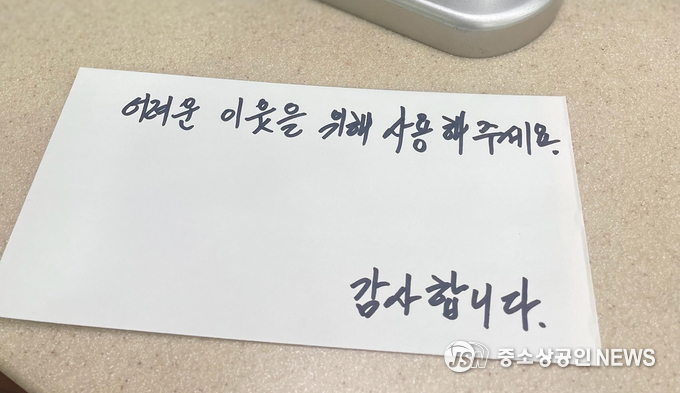 어려운 이웃을 위해 사용해주세요.
감사합니다.
JSN 중소상공인NEWS